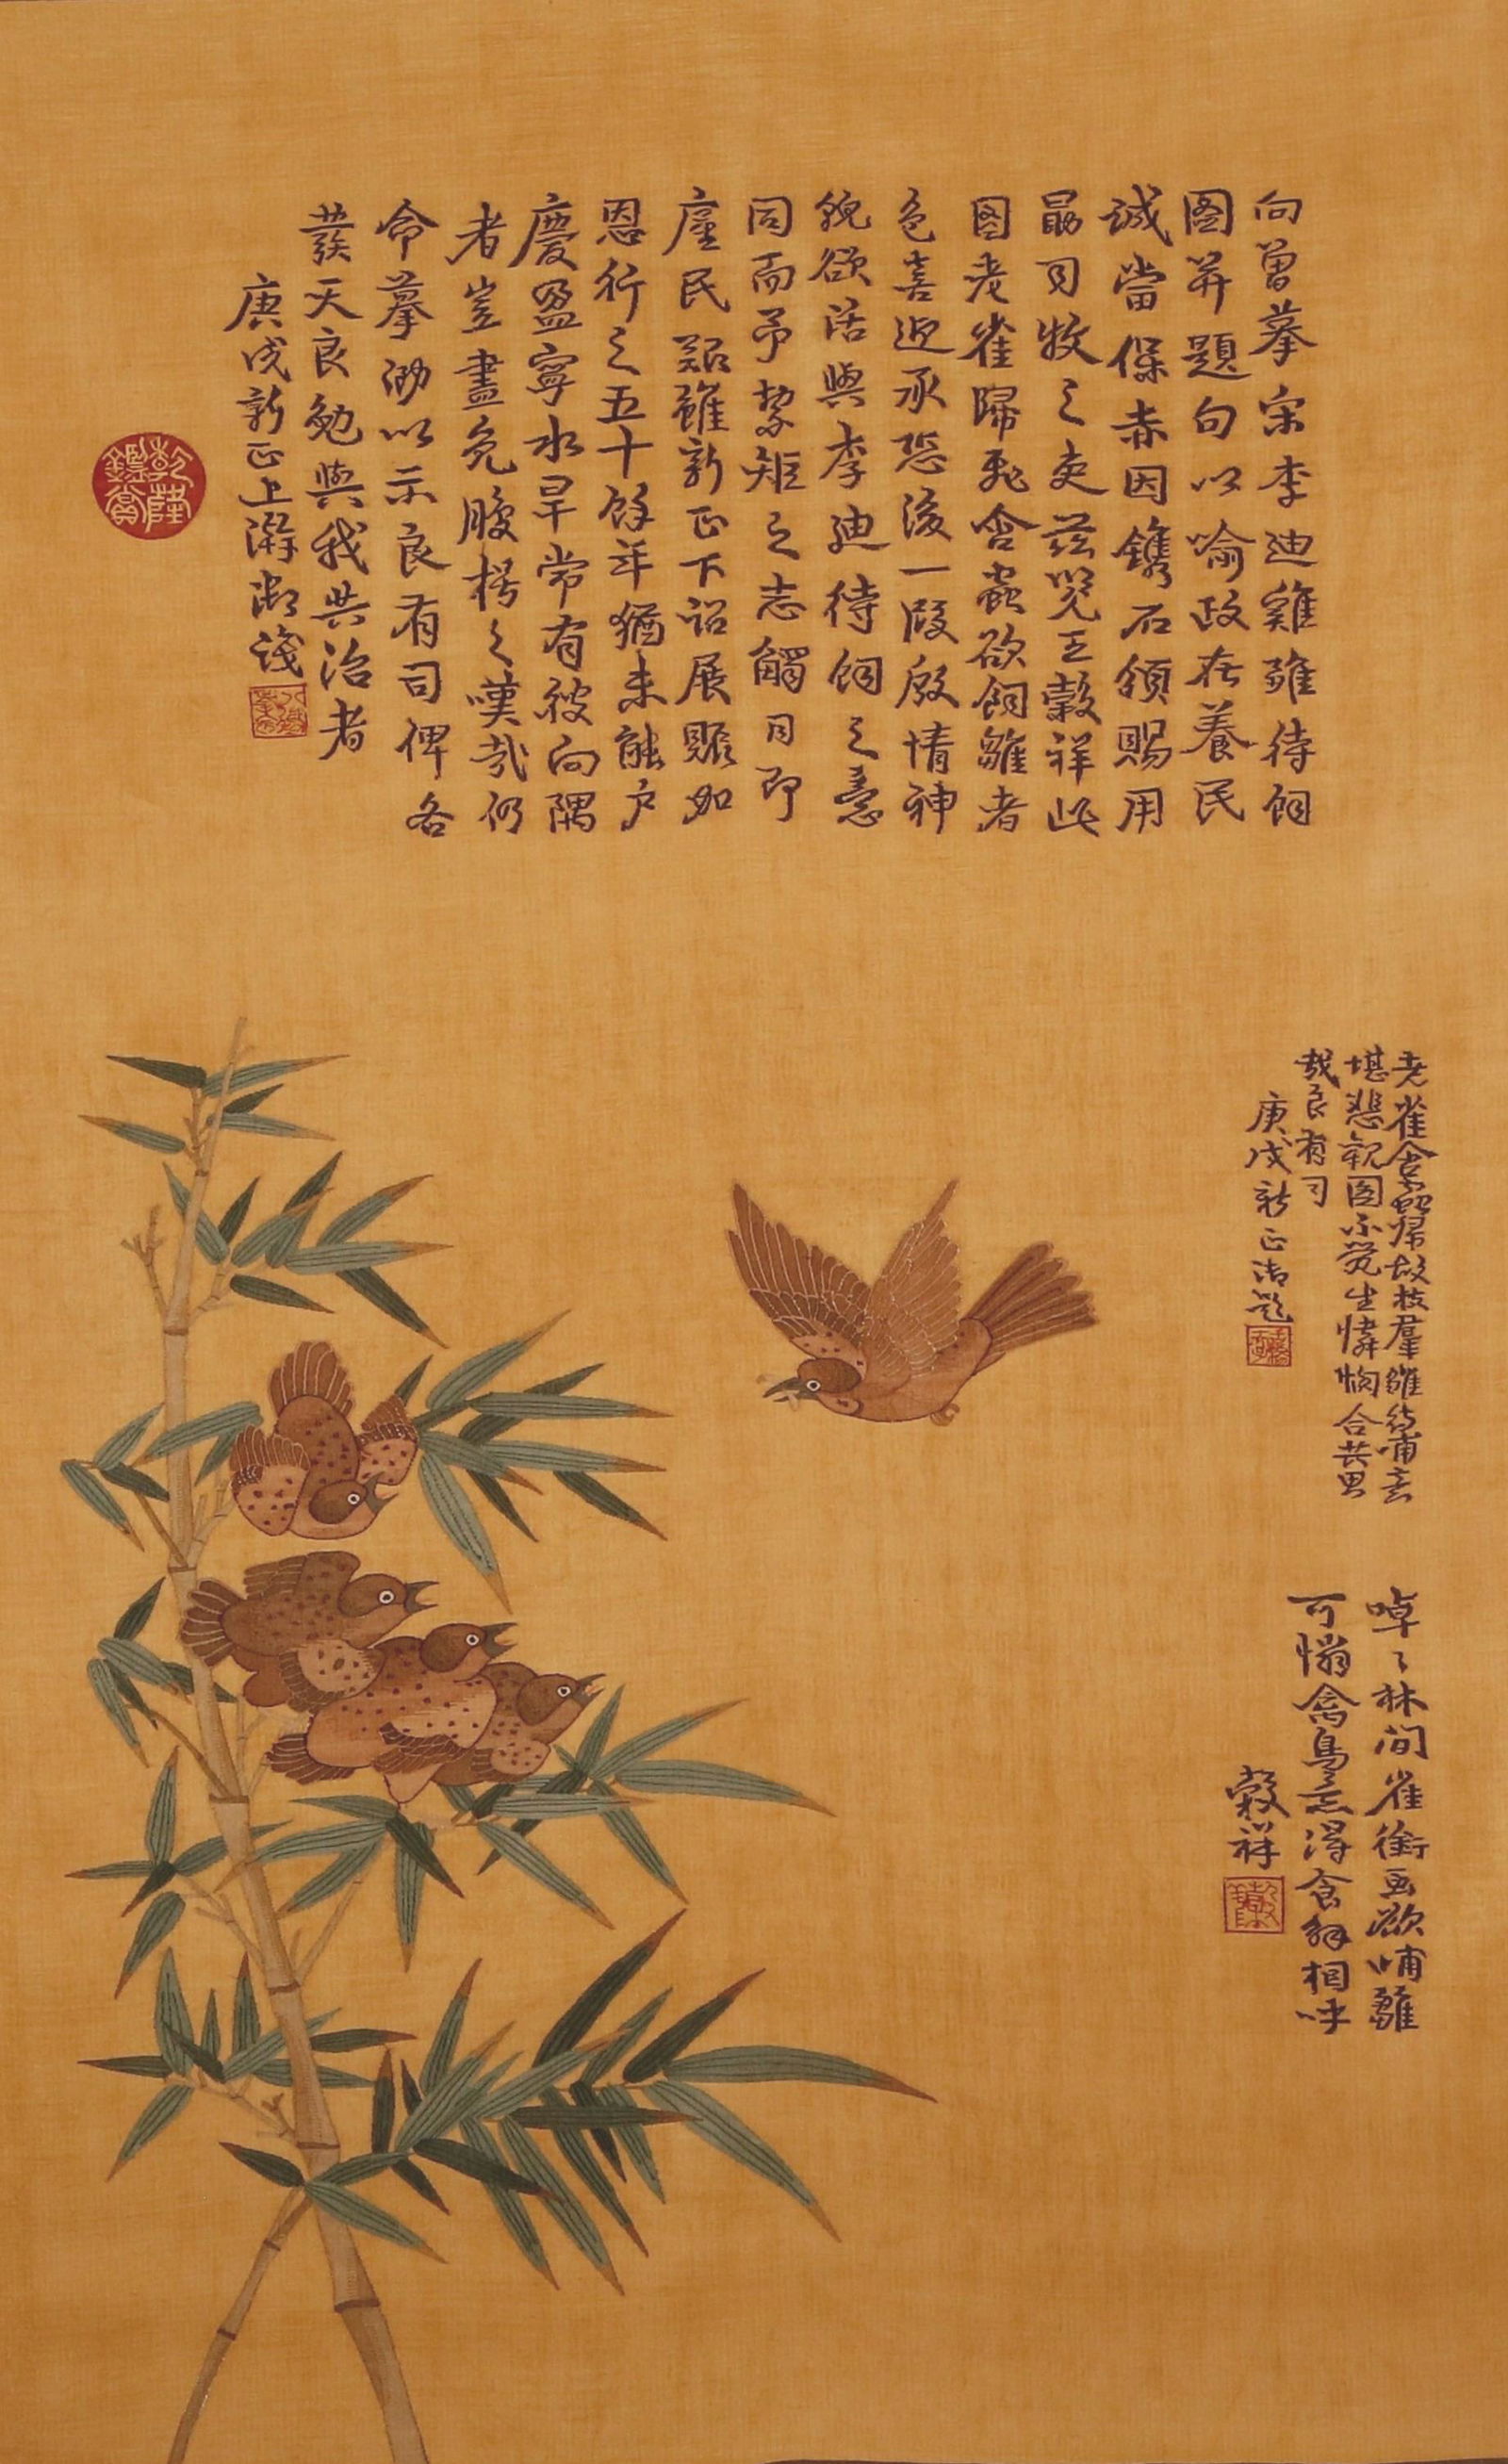 向曾摹宋李迪雞雛待飼
圖並題句以喻政在養民
誠當保赤因鐫石頒賜用
勗司牧之吏茲覽王穀祥此
圖老雀歸飛含蟲欲飼雛者
色喜迎承恐後一段殷情神
貌欲活與李迪待飼之意
同而予絜矩之志觸目即
廑民艱雖新正下詔展賑如
恩行之五十餘年猶未能户
慶盈寧水旱常有被向隅
者豈盡免腹枵之嘆哉仍
命摹泐以示良有司俾各
發天良勉與我共治者
庚戌新正上澣御識
乾隆鑑賞
老雀含蟲歸故枝羣雛待哺意
堪悲觀圖不覺生憐恤合共思
哉良有司
庚戌新正御題
啅〻林間雀銜虫欲哺雛
可憐禽鳥志得食解相呼
穀祥